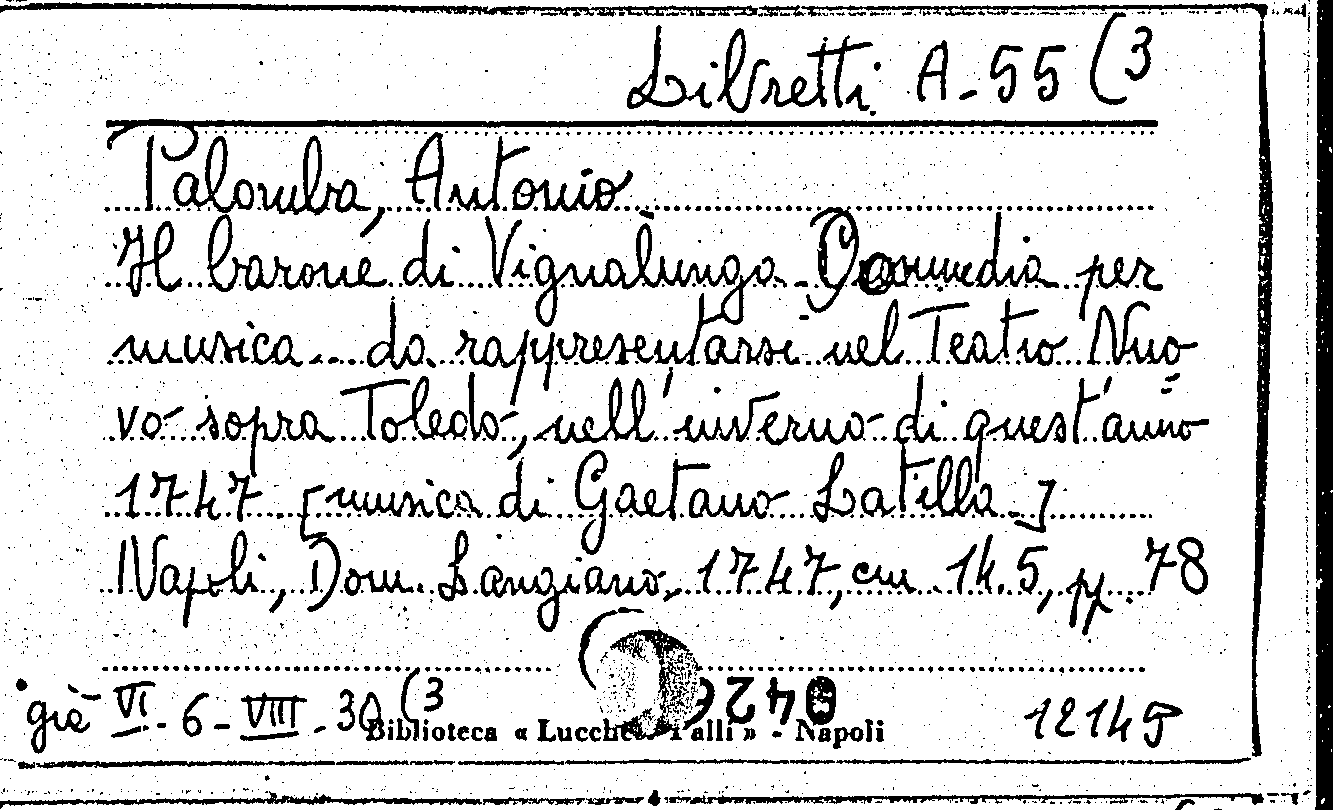 Libretti A-55 (3
Palomba, Antonio
Il barone di Vignalunga - Commedia per
musica... da rappresentarsi nel Teatro Nuo=
vo sopra Toledo, nell'inverno di quest'anno
1747 [musica di Gaetano Latilla]
Napoli, Dom. Langiano, 1747, cm. 14.5, pp. 78
già VI-6-VIII-30 (3
Biblioteca « Lucchesi Palli » - Napoli
12145